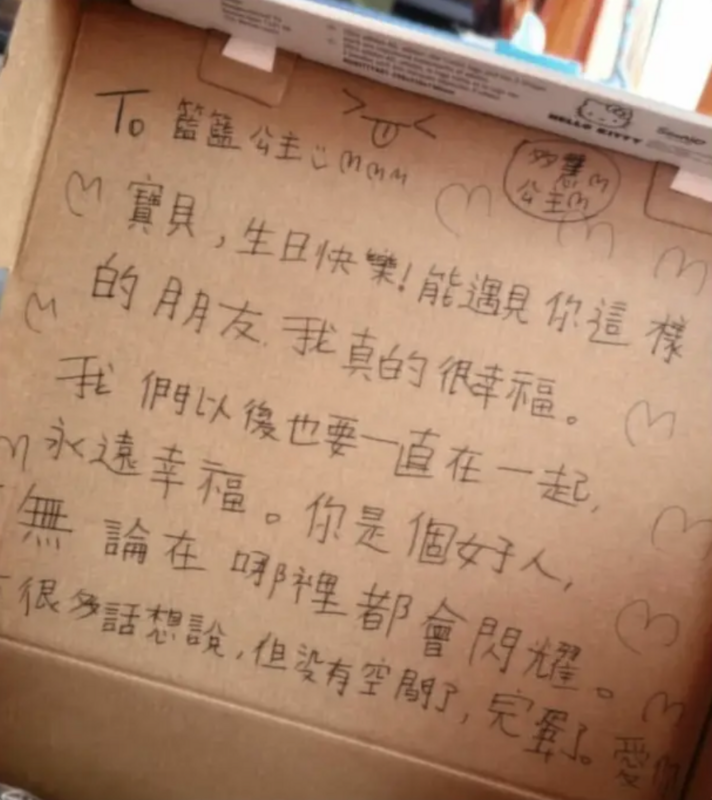 HELLO KITTY
To 籃籃公主
多慧
公主
寶貝，生日快樂！能遇見你這樣
的朋友，我真的很幸福。
我們以後也要一直在一起，
永遠幸福。你是個好人，
無論在哪裡都會閃耀。
很多話想說，但沒有空間了，完蛋了。愛